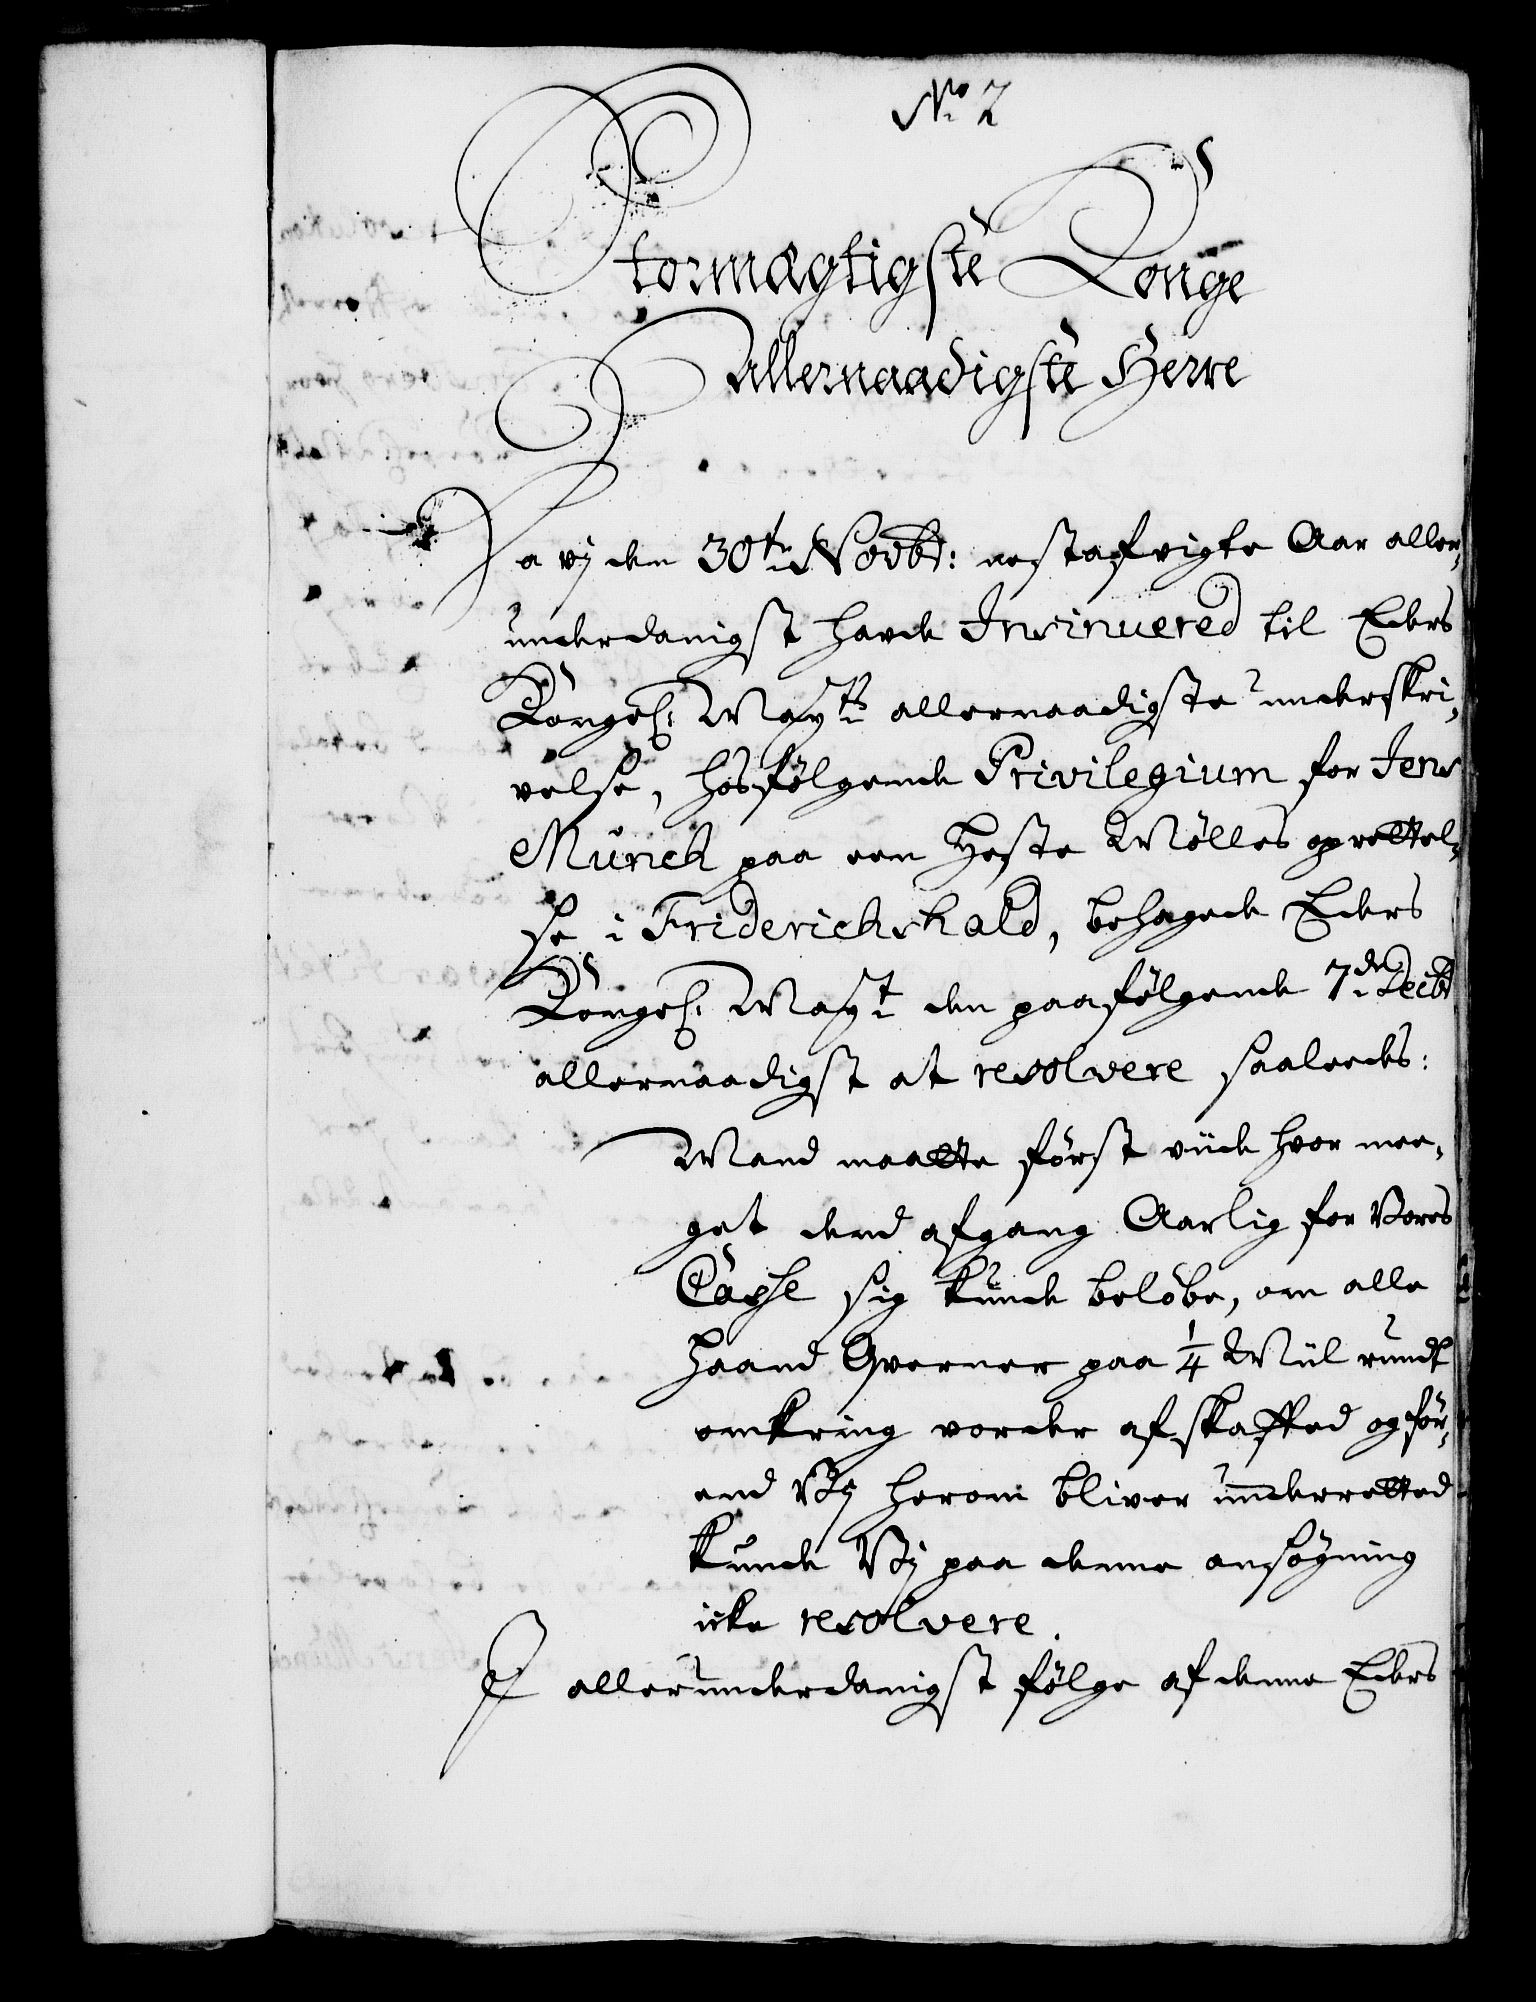 No 2
Stormægtigste Konge
allernaadigste Herre
Da vj den 30te Novbr: nestafvigte Aar aller-
underdanigst hafde Insinuered til Eders
Kongel: Maytz allernaadigste underskri-
velse, hosfølgende Privilegium for Jens
Munch paa een Heste Mølles oprettel-
se i Friderichshald, behagede Eders
Kongel: Mayt den paafølgende 7de Decbr
allernaadigst at resolvere saaleedes:
Mand maatte först viide hvor mee-
get dend afgang Aarlig for Vores
Casse sig kunde beløbe, om alle
Haand Qverner paa 1/4 Miil rundt
omkring vorder afskaffed og för-
end Vj herom bliver underretted
kunde Vj paa denne ansøgning
icke resolvere.
J allerunderdanigst følge af denne Eders